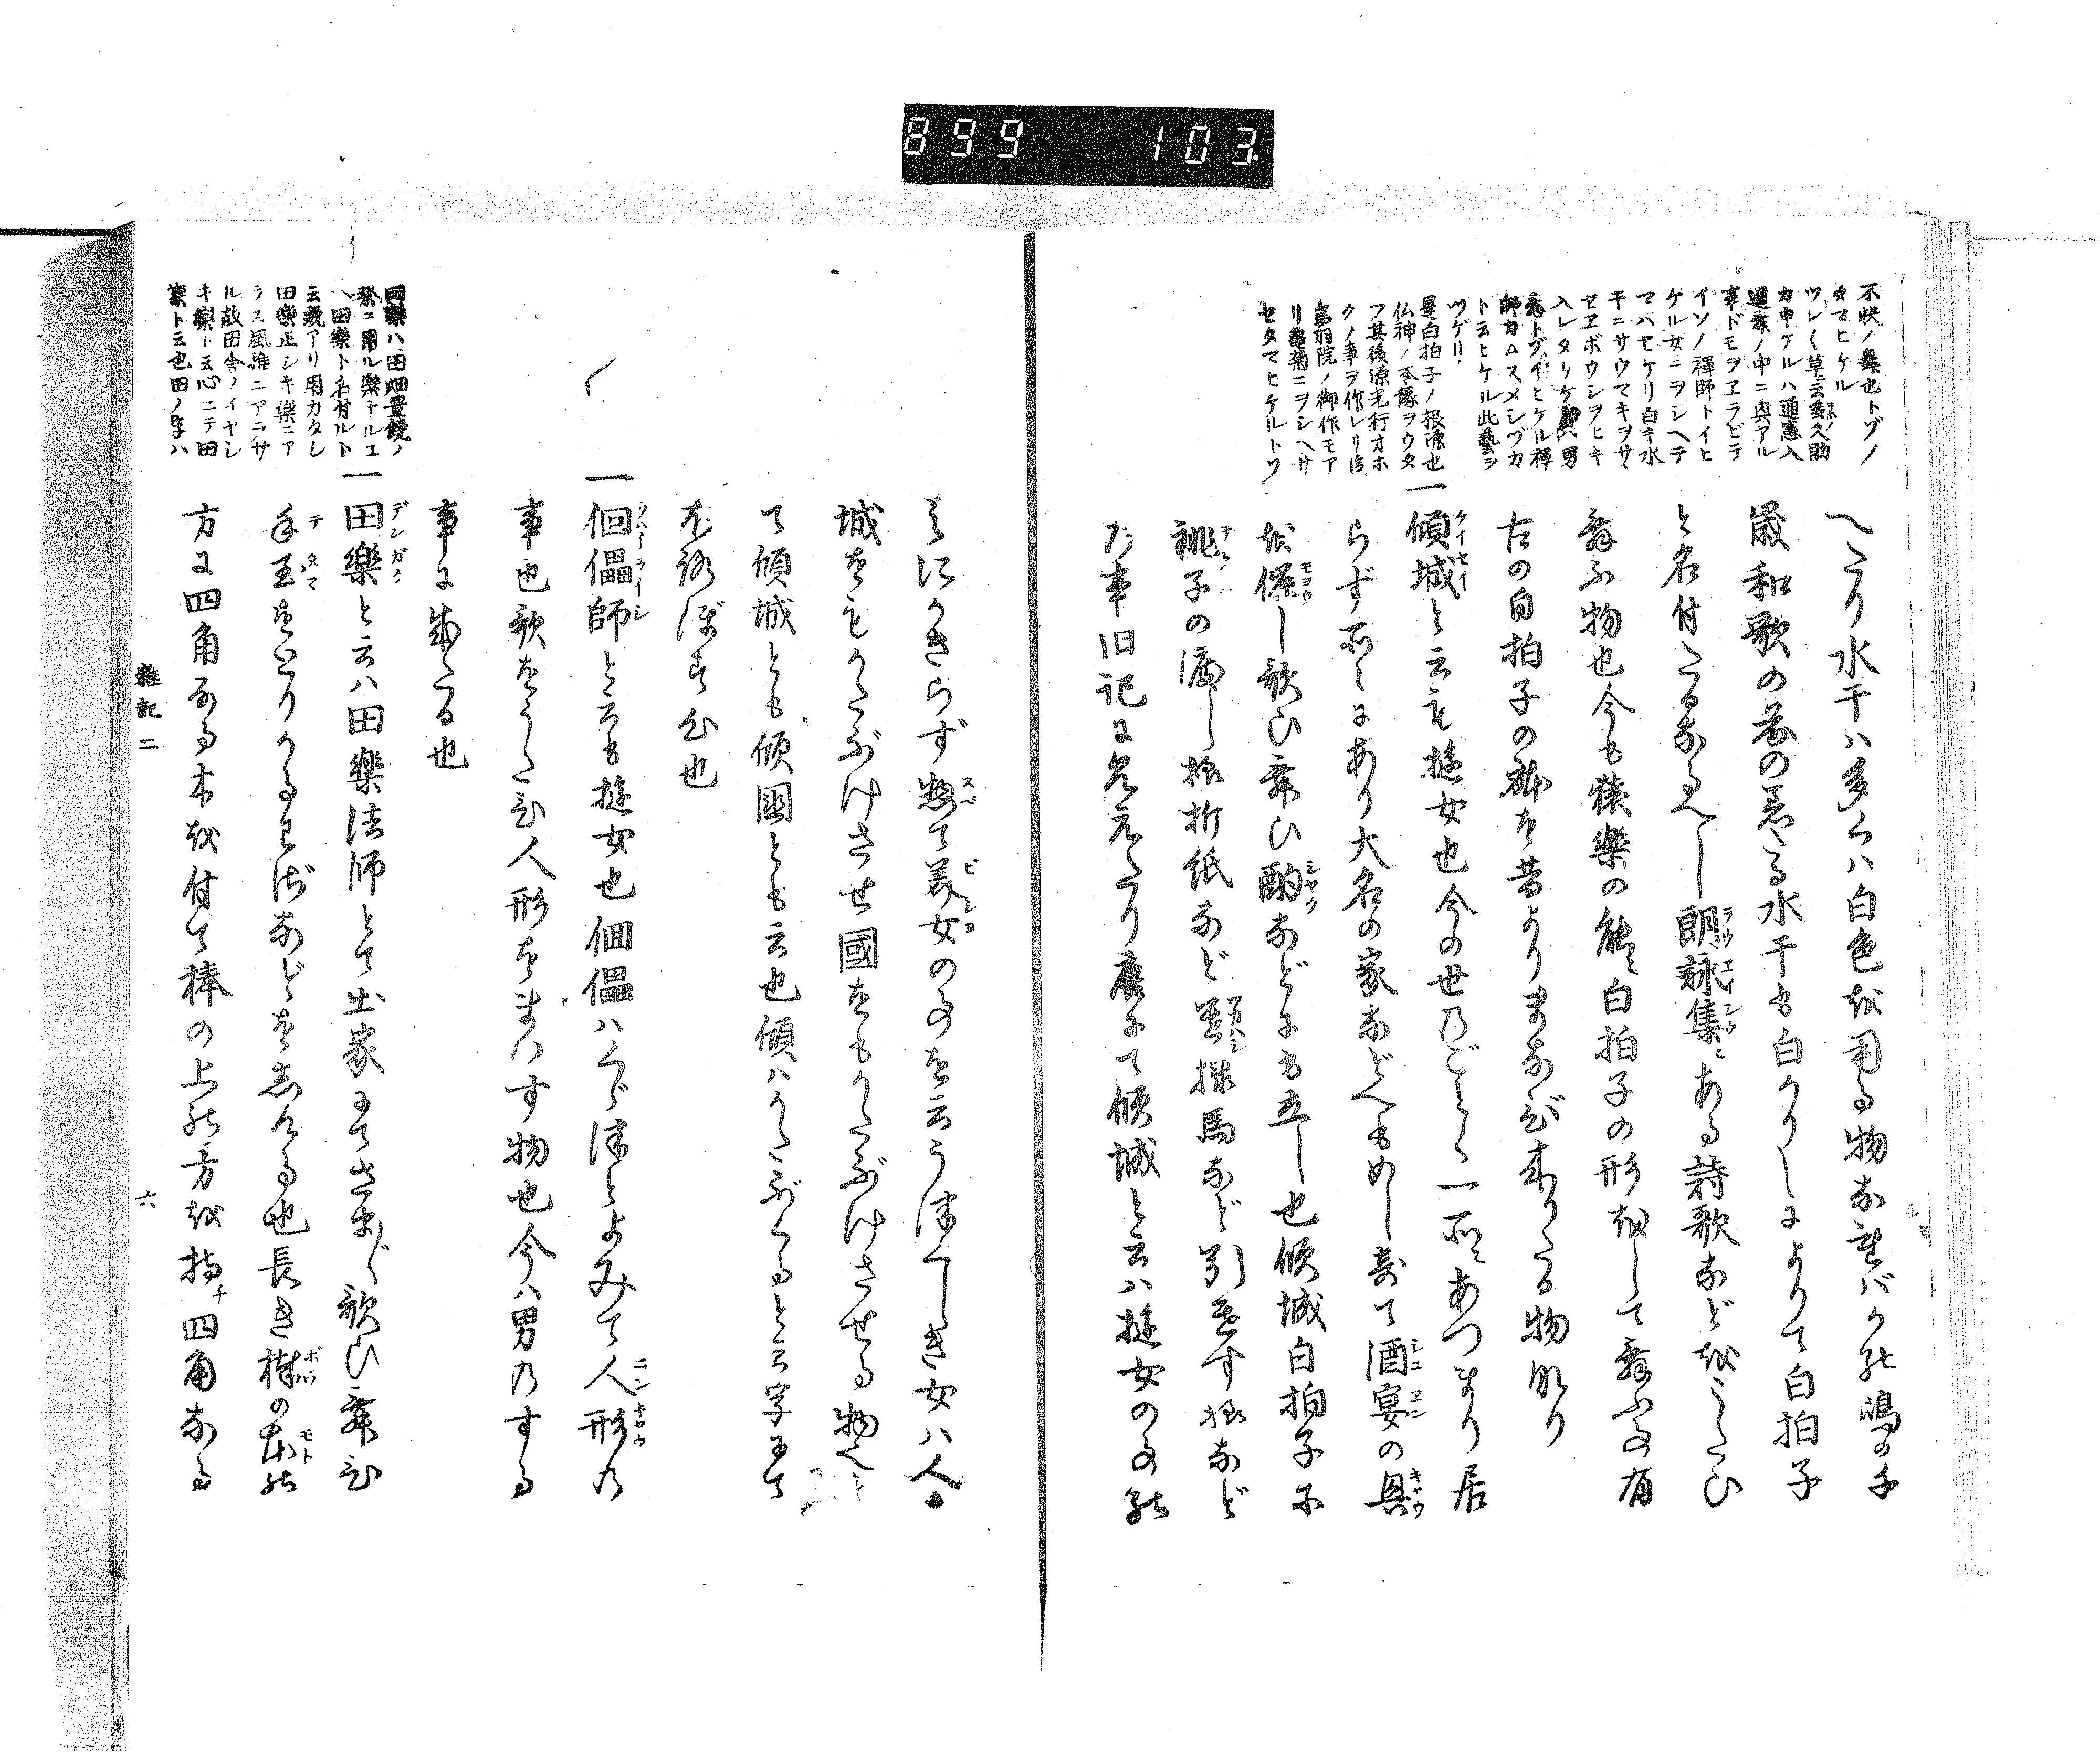 899 103
不快ノ舞也トゾノ
タマヒケル
ツレ〱草云多久助
カ申ケルハ通憲入
道舞ノ中ニ興アル
事ドモヲヱラビテ
イソノ禅師トイヒ
ケル女ニヲシヘテ
マハセケリ白キ水
干ニサウマキヲサヽ
セヱボウシヲヒキ
入レタリケレハ男
舞トゾイヒケル禅
師カムスメシヅカ
ト云ヒケル此藝ヲ
ツゲリ
是白拍子ノ根源也
仏神ノ本縁ヲウタ
フ其後源光行オホ
クノ事ヲ作レリ後
鳥羽院ノ御作モア
リ亀菊ニヲシヘサ
セタマヒケルトゾ
へたり水干ハ多くハ白色を用る物なればかの嶋の千
歳和歌の前の着たる水干も白かりしによりて白拍子
と名付たるなるべし朗詠集ニある詩歌などをうたひ
舞ふ物也今も猿樂の能ニ白拍子の形をして舞ふ事有
古の白拍子の躰を昔よりまなび来りたる物なり
一傾城と云も遊女也今の世のごとく一所ニあつまり居
らず所々にあり大名の家などへもめし寄て酒宴の興
を催し歌ひ舞ひ酌などにも立し也傾城白拍子に
銚子の渡し様折紙など 鞍馬など引わたす様など
た事旧記に見えたり唐にて傾城と云ハ遊女の事の
ミにかきらず惣て美女の事を云うつくしき女ハ人の
城をもかたぶけさせ國をもかたぶけさせる物ゆへ
て傾城とも傾國とも云也傾ハかたぶくると云字にて
ほろぼす心也
一傀儡師と云も遊女也傀儡ハくぐつとよみて人形の
事也歌をうたひ人形をまハす物也今ハ男のする
事に成たる也
一田樂と云ハ田樂法師とて出家にてさま〲歌ひ舞ひ
手玉をとりかるわざなどをしたる也長き棒の本の
方に四角なる木を付て棒の上の方を持チ四角なる
田樂ハ田畑豊饒ノ
祭ニ用ル樂ナルユ
ヘ田樂ト名付ルト
云説アリ用カタシ
田樂正シキ樂ニア
ラス風雅ニアラサ
ル故田舎ノイヤシ
キ樂ト云心ニテ田
樂ト云也田ノ字ハ
雜記二
六